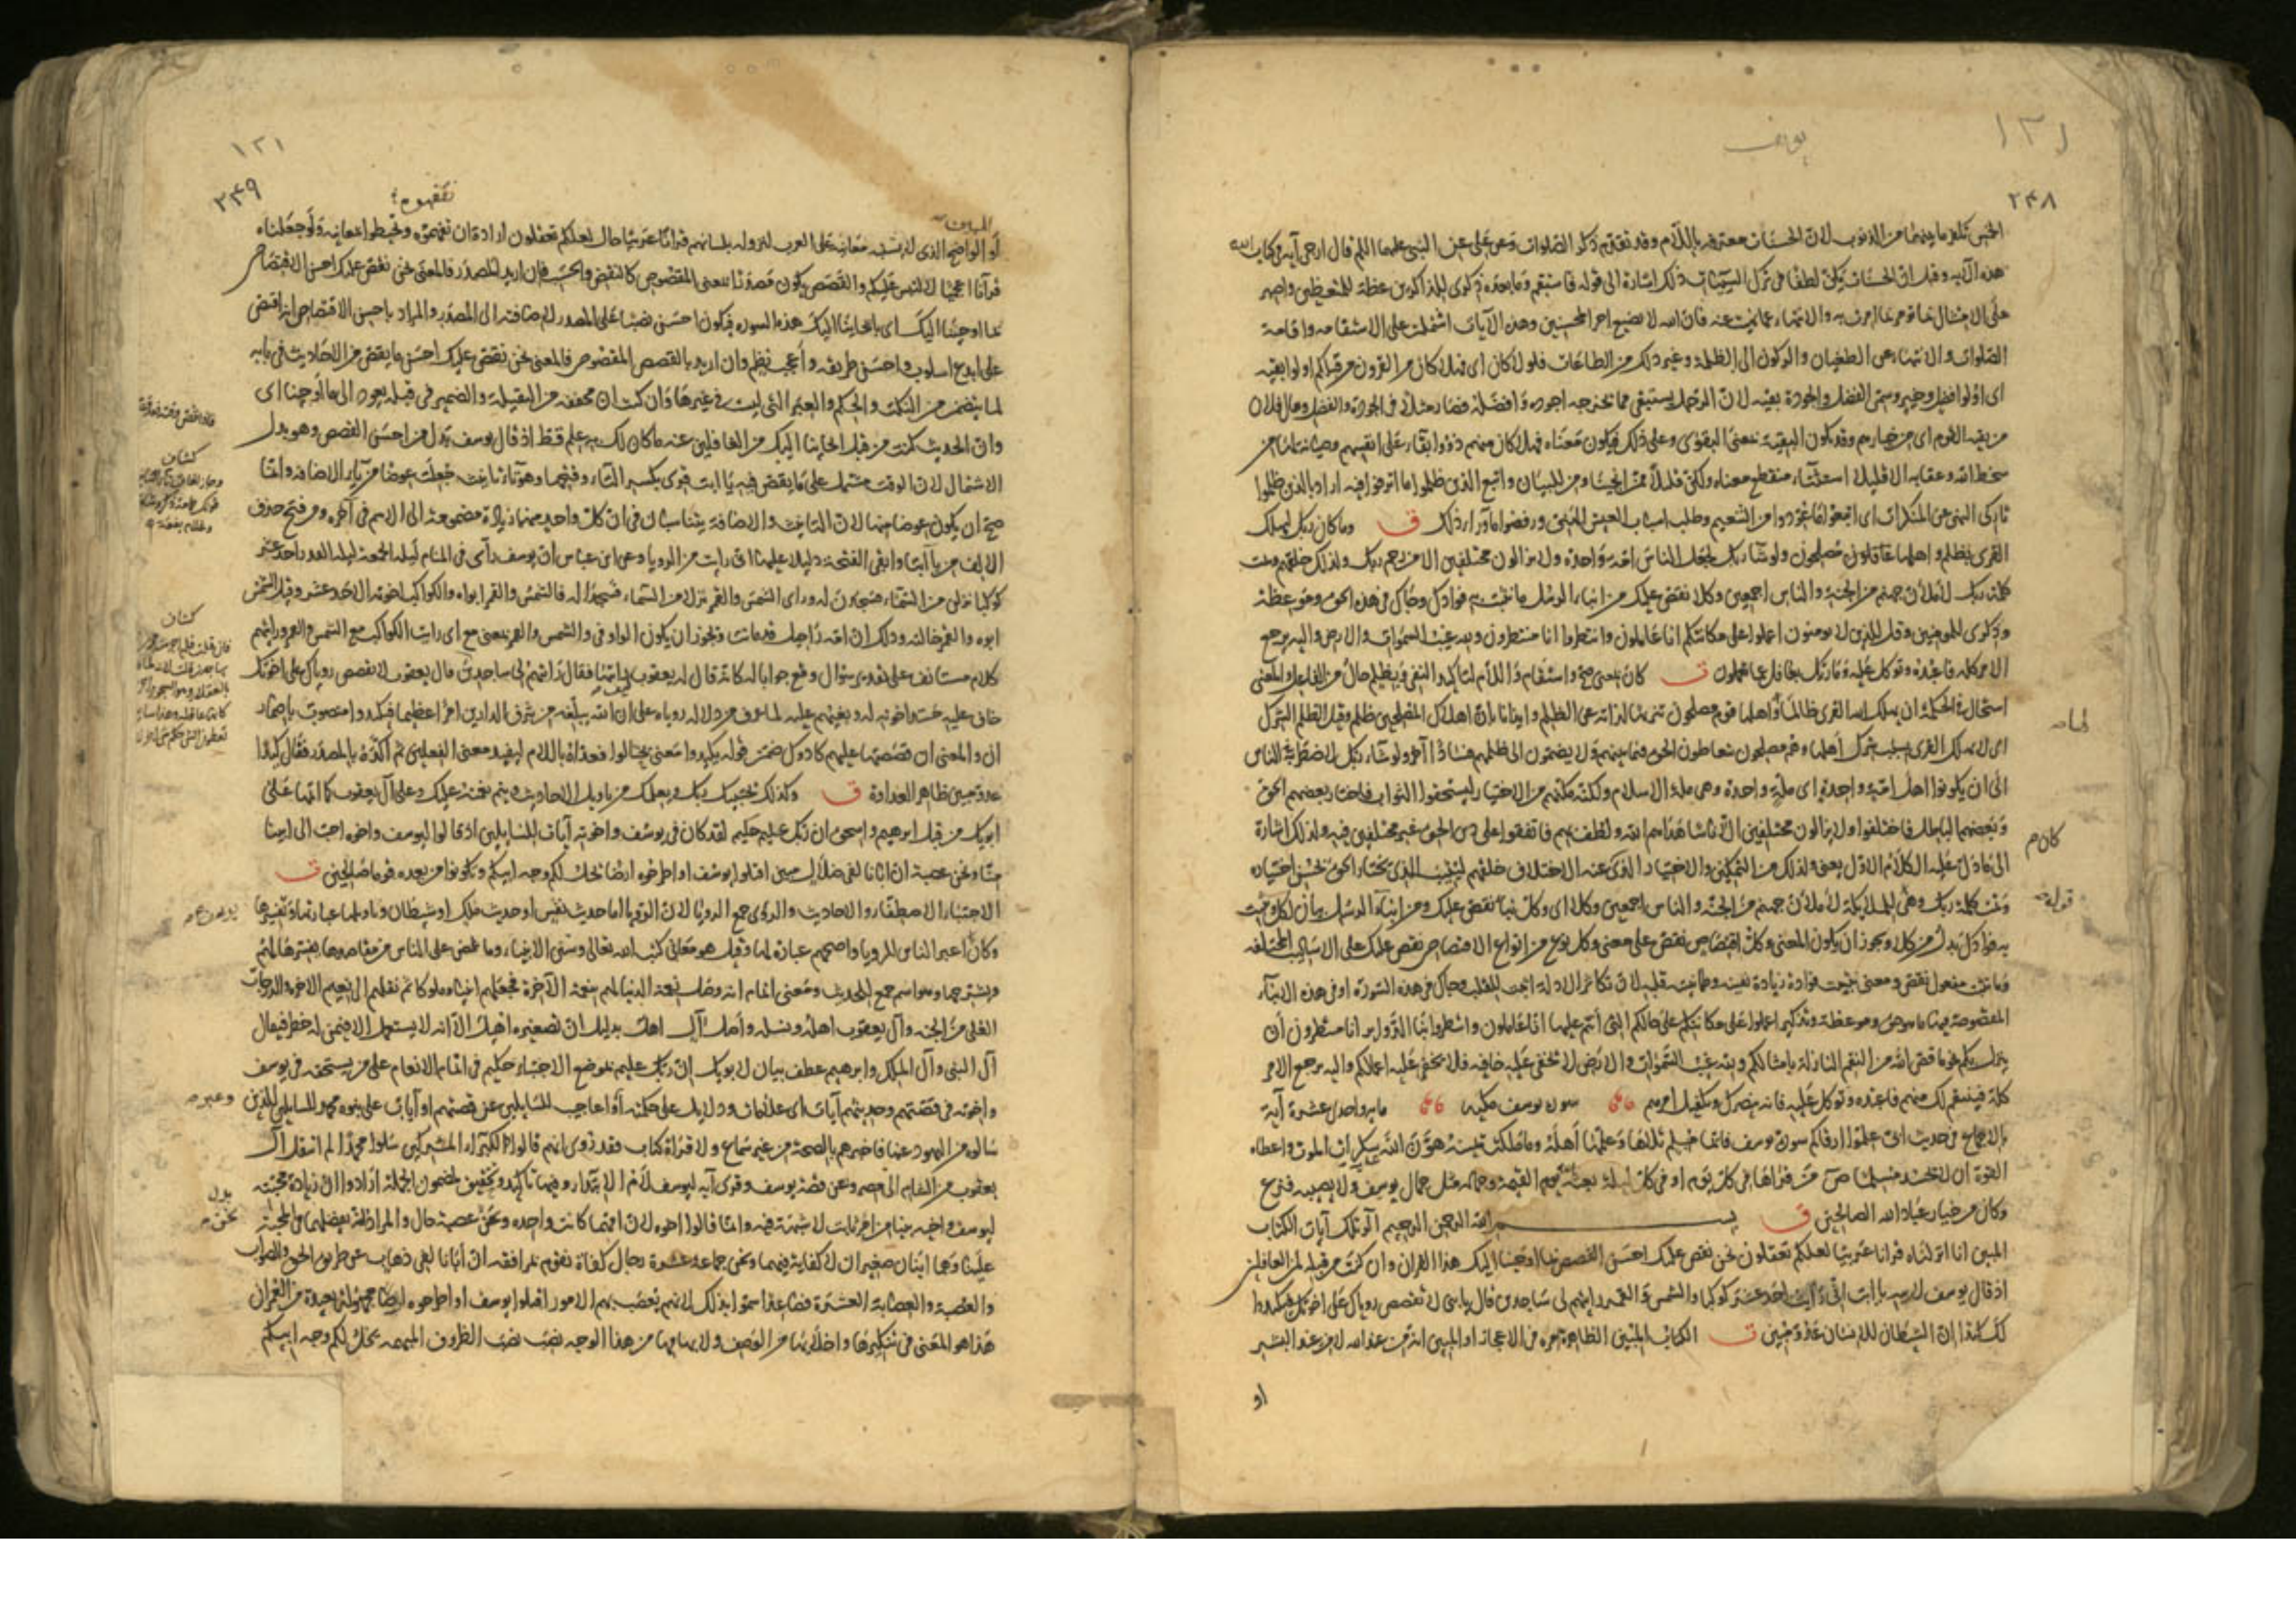 يوسف
١٣١
٢٤٨
الخمس تكفر ما بينها من الذنوب لان الحسنات معترفه باللام وقد تقدم ذكر الصلوات وعن علي عن النبي عليهما السلام قال ارجى آية في كتاب الله
هذه الآيه وقيل ان الحسنات يكن لطفا في ترك السيئات ذلك اشارة الى قوله فاستقم وما بعده ذكرى للذاكرين عظة للمتعظين واصبر
على الامتثال بما امرت به والانتهاء عما نهيت عنه فان الله لا يضيع اجر المحسنين وهذه الآيات اشتملت على الاستقامه واقامة
الصلوات والانتهاء عن الطغيان والركون الى الظلمة وغير ذلك من الطاعات فلولا كان اي فهلا كان من القرون من قبلكم اولوا بقيه
اي اولوا فضل وخير وسمي الفضل والجودة بقيه لان الرجل يستبقي مما يخرجه اجوده وافضله فصار مثلا في الجودة والفضل ويقال فلان
من بقيه القوم اي من خيارهم وقد يكون البقية بمعنى البقوى وعلى ذلك فيكون معناه فهلا كان منهم ذوو ابقاء على انفسهم وصيانة لها من
سخط الله وعقابه الا قليلا استثناء منقطع معناه ولكن قليلا ممن انجينا ومن للبيان واتبع الذين ظلموا ما اترفوا فيه اراد بالذين ظلموا
تاركي النهي عن المنكرات اي اتبعوا ما تعودوا من التنعيم وطلب اسباب العيش الهني ورفضوا ما وراء ذلك ق وما كان ربك ليهلك
القرى بظلم واهلها غافلون مصلحون ولو شاء ربك لجعل الناس امة واحدة ولا يزالون مختلفين الا من رحم ربك ولذلك خلقهم وتمت
كلمة ربك لأملأن جهنم من الجنة والناس اجمعين وكلا نقص عليك من انباء الرسل ما نثبت به فؤادك وجاءك في هذه الحق وموعظة
وذكرى للمؤمنين وقل للذين لا يؤمنون اعملوا على مكانتكم انا عاملون وانتظروا انا منتظرون ولله غيب السموات والارض واليه يرجع
الامر كله فاعبده وتوكل عليه وما ربك بغافل عما تعملون ق كان بمعنى صح واستقام واللام لتأكيد النفي وبظلم حال من الفاعل والمعنى
استحال في الحكمة ان يهلك الله القرى ظالما واهلها قوم مصلحون تنزيها لذاته عن الظلم وايذانا بان اهلاك المصلحين ظلم وقيل الظلم الشرك
اي لا يهلك القرى بسبب شرك اهلها وهم مصلحون يتعاطون الحق فيما بينهم ولا يضمون الى ظلمهم فسادا آخر ولو شاء ربك لاضطر الناس
الى ان يكونوا اهل امة واحدة اي ملة واحدة وهي ملة الاسلام ولكنه مكنهم من الاختيار ليستحقوا الثواب فاختار بعضهم الحق
وبعضهم الباطل فاختلفوا ولا يزالون مختلفين الا ناسا هداهم الله ولطف بهم فاتفقوا على دين الحق غير مختلفين فيه ولذلك اشارة
الى ما دل عليه الكلام الاول يعني ولذلك من التمكين والاختيار الذي عنه الاختلاف خلقهم ليثيب الذي يختار الحق بحسن اختياره
وتمت كلمة ربك وهي للملائكة لأملأن جهنم من الجنة والناس اجمعين وكلا اي وكل نبأ نقص عليك ومن انباء الرسل بيان لكل ونثبت
به فؤادك بدل من كلا ويجوز ان يكون المعنى وكل اقتصاص نقص على معنى وكل نوع من انواع الاقتصاص نقص عليك على الاساليب المختلفه
وما نثبت مفعول نقص ومعنى تثبيت فؤاده زيادة يقينه وطمأنينة قلبه لان تكاثر الادلة اثبت للقلب وجاءك في هذه السورة او في هذه الانباء
المقصوصة فيها ما هو حق وموعظة وتذكير اعملوا على مكانتكم على حالكم التي انتم عليها انا عاملون وانتظروا بنا الدوائر انا منتظرون أن
ينزل بكم نحو ما قص الله من النقم النازلة بامثالكم ولله غيب السموات والارض لا تخفى عليه خافيه فلا تخفى عليه اعمالكم واليه يرجع الامر
كله فينتقم لك منهم فاعبده وتوكل عليه فانه ينصرك ويكفيك امرهم سورة يوسف مكيه مايه واحدى عشرة آية
بالاجماع في حديث ابي علموا ارقاكم سورة يوسف فايما مسلم تلاها وعلمها اهله وما ملكت يمينه هون الله عليه سكرات الموت واعطاه
القوة ان لا يحسد مسلما ص من قرأها في كل يوم او في كل ليلة بعثه يوم القيمة وجماله مثل جمال يوسف ولا يصيبه فزع
وكان من خيار عباد الله الصالحين ق بسم الله الرحمن الرحيم الر تلك آيات الكتاب
المبين انا انزلناه قرانا عربيا لعلكم تعقلون نحن نقص عليك احسن القصص بما اوحينا اليك هذا القران وان كنت من قبله لمن الغافلين
اذ قال يوسف لابيه يا ابت اني رأيت احد عشر كوكبا والشمس والقمر رايتهم لي ساجدين قال يا بني لا تقصص رؤياك على اخوتك فيكيدوا
لك كيدا ان الشيطان للانسان عدو مبين ق الكتاب المبين الظاهر امره في الاعجاز او المبين انه من عند الله لا من عند البشر
او
١٣١
٢٤٩
تفقهوه
المبين
أو الواضح الذي لا يشتبه معانيه على العرب لنزوله بلسانهم قرانا عربيا حال لعلكم تعقلون ارادة ان تفهموه وتحيطوا بمعانيه ولو جعلناه
قرآنا اعجميا لالتبس عليكم والقصص يكون مصدرا بمعنى المقصوص كالنقض والحسب فان اريد المصدر فالمعنى نحن نقص عليك احسن الاقتصاص
بما اوحينا اليك اي بايحائنا اليك هذه السوره فيكون احسن نصبا على المصدر لاضافته الى المصدر والمراد باحسن الاقتصاص انه اقتص
على ابدع اسلوب واحسن طريقه واعجب نظم وان اريد بالقصص المقصوص فالمعنى نحن نقص عليك احسن ما يقص من الاحاديث في بابه
لما يتضمن من النكت والحكم والعبر التي ليست في غيرها وان كنت ان مخففه من الثقيلة والضمير في قبله يعود الى ما اوحينا اي
وان الحديث كنت من قبل ايحائنا اليك من الغافلين عنه ما كان لك به علم قط اذ قال يوسف بدل من احسن القصص وهو بدل
الاشتمال لان الوقت مشتمل على ما يقص فيه يا ابت قرئ بكسر التاء وفتحها وهو تاء تأنيث جعلت عوضا من ياء الاضافه وانما
صح ان يكون عوضا منها لان التأنيث والاضافة يتناسبان في ان كل واحد منهما زيادة مضمومة الى الاسم في آخره ومن فتح حذف
الالف من يا ابتا وابقى الفتحة دليلا عليها اني رايت من الرويا وعن ابن عباس ان يوسف رأى في المنام ليلة الجمعة ليلة القدر احد عشر
كوكبا نزلن من السماء فسجدن له وراى الشمس والقمر نزلا من السماء فسجدا له فالشمس والقمر ابواه والكواكب اخوته الاحد عشر وقيل الشمس
ابوه والقمر خالته وذلك ان امه راحيل قد ماتت ويجوز ان يكون الواو في والشمس والقمر بمعنى مع اي رايت الكواكب مع الشمس والقمر ورايتهم
كلام مستأنف على تقدير سؤال وقع جوابا له كانه قال له يعقوب كيف رايتها فقال رايتهم لي ساجدين قال يعقوب لا تقصص رؤياك على اخوتك
خاف عليه حسد اخوته له وبغيهم عليه لما عرف من دلاله روياه على ان الله يبلغه من شرف الدارين امرا عظيما فيكيدوا منصوب باضمار
ان والمعنى ان قصصتها عليهم كادوك ضمن قوله يكيدوا معنى يحتالوا فعداه باللام ليفيد معنى الفعلين ثم اكده بالمصدر فقال كيدا
عدو مبين ظاهر العداوة ق وكذلك يجتبيك ربك ويعلمك من تاويل الاحاديث ويتم نعمته عليك وعلى آل يعقوب كما اتمها على
ابويك من قبل ابرهيم واسحق ان ربك عليم حكيم لقد كان في يوسف واخوته آيات للسائلين اذ قالوا ليوسف واخوه احب الى ابينا
منا ونحن عصبة ان ابانا لفي ضلال مبين اقتلوا يوسف او اطرحوه ارضا يخل لكم وجه ابيكم وتكونوا من بعده قوما صالحين ق
الاجتباء الاصطفاء والاحاديث والرؤى جمع الرويا لان الرويا اما حديث نفس او حديث ملك او شيطان وتاويلها عبارتها وتفسيرها
وكان اعبر الناس للرويا واصحهم عبارة لها وقيل هو معاني كتب الله تعالى وسنن الأنبياء وما غمض على الناس من مقاصدها يفسرها لهم
ويشرحها وهو اسم جمع للحديث ومعنى اتمام النعمة انه وصل نعمة الدنيا لهم بنعمة الآخرة فجعلهم انبياء وملوكا ثم نقلهم الى نعيم الاخرة والدرجات
العلى من الجنه وآل يعقوب اهله ونسله وأصل آل اهل بدليل ان تصغيره اهيل الا انه لا يستعمل الا فيمن له خطر فيقال
آل النبي وآل الملك وابرهيم عطف بيان لابويك ان ربك عليم بموضع الاجتباء حكيم في اتمام الانعام على من يستحقه في يوسف
واخوته في قصتهم وحديثهم آيات اي علامات ودلايل على حكمته أو اعاجيب للسائلين عن قصتهم او آيات على نبوه محمد للسائلين الذين
سالوه من اليهود عنها فاخبرهم بالصحة من غير سماع ولا قراة كتاب فقد روي انهم قالوا لكبراء المشركين سلوا محمدا لم انتقل آل
يعقوب من الشام الى مصر وعن قصة يوسف وقرئ آية ليوسف لام الابتداء وفيها تاكيد وتحقيق لمضمون الجملة ارادوا ان زيادة محبته
ليوسف واخيه بنيامين امر ثابت لا شبهة فيه وانما قالوا اخوه لان امهما كانت واحده ونحن عصبة حال والمراد انه يفضلهما في المحبة
علينا وهما ابنان صغيران لا كفاية فيهما ونحن جماعة عشرة رجال كفاة نقوم بمرافقه ان أبانا لفي ذهاب عن طريق الحق والصواب
والعصبة والعصابة العشرة فصاعدا سموا بذلك لانهم تعصب بهم الامور اقتلوا يوسف او اطرحوه ارضا مجهولة بعيدة من العمران
هذا هو المعنى في تنكيرها واخلائها من الوصف ولابهامها من هذا الوجه نصب نصب الظروف المبهمه يخل لكم وجه ابيكم
كشاف
كشاف
بدل
نحن